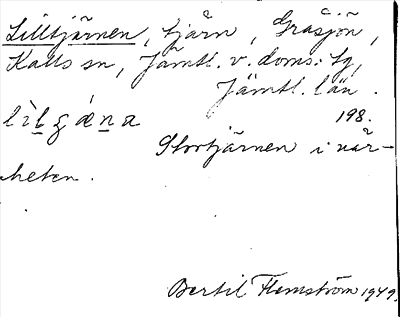 Lilltjärnen, tjärn, Gråsjön,
Kalls sn, Jämtl. v. doms. tg,
Jämtl. län.
198.
Stortjärnen i när-
heten.
Bertil Flemström 1949.